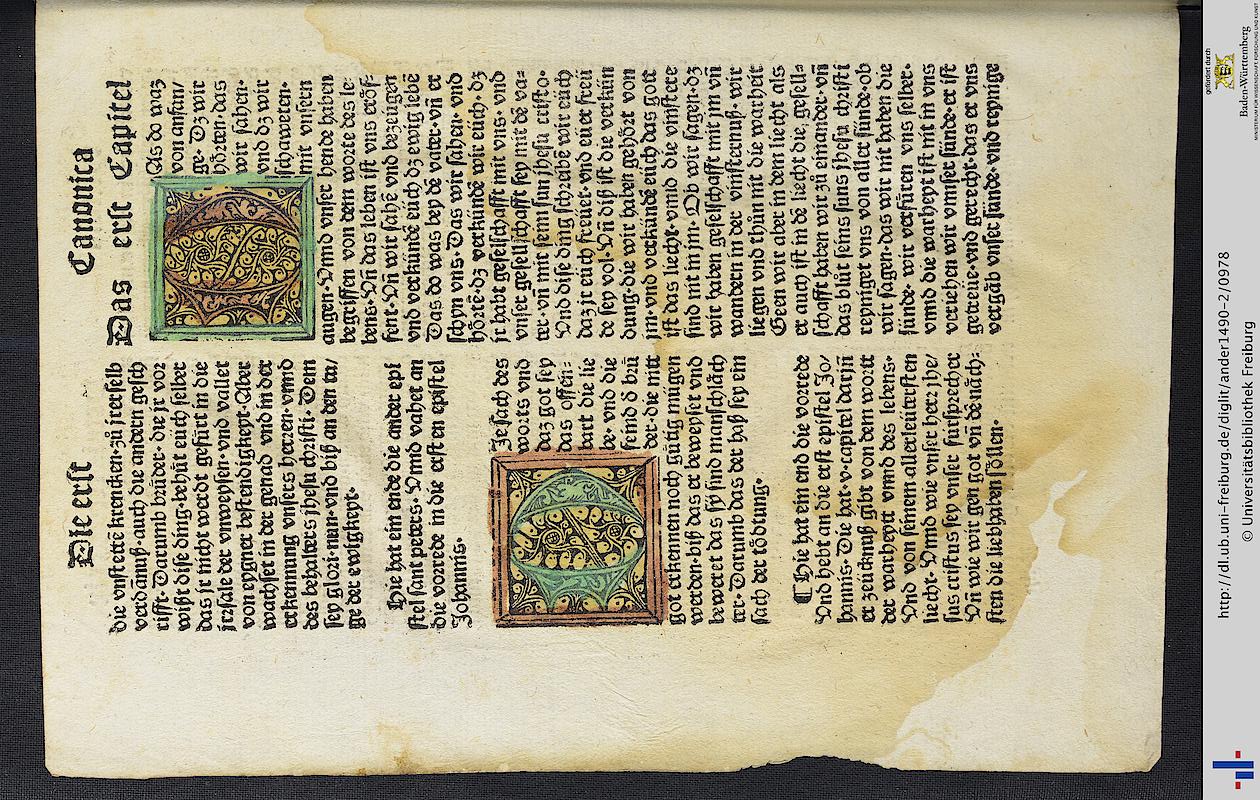 Die erst
Canonica
die vnstette krencken·zů jrerselb
verdãnuß·auch die andern gesch
rifft·Darumb brüder·die jr vor
wißt dise ding·behüt euch selber
das jr nicht werdt gefürt in die
jrrsale der vnweysen·vnd vallet
von eygner bestendigkeyt·Aber
wachset in der genad vnd in der
erkennung vnsers herren·vnnd
des behalters jhesu christi·Dem
sey glori·nun·vnd biß an den ta/
ge der ewigkeyt·
Hie hat ein ende die ander epi
stel sant peters·Vnd vahet an
die vorrede in die ersten epistel
Johannis·
Je sach des
worts vnd
daz got sey
das offen=
bart die lie
be·vnd die
feind d brů
der·die nitt
got erkennen noch gütig mügen
werden·biß das er beweyset vnd
beweret das sy sind manschlãch
ter·Darumb das der haß sey ein
sach der tödtung·
¶ Hie hat ein end die vorrede
Vnd hebt an die erst epistel Jo/
hannis·Die hat·v·capitel darjñ
er zeücknuß gibt von dem wortt
der warheyt vnnd des lebens·
Vnd von seinem allerleütersten
liecht·Vnnd wie vnser herr jhe/
sus cristus sey vnser fürsprecher
Vñ wie wir got vñ dẽ nåch=
sten die liebhaben söllen·
Das erst Capitel
As do waz
von anfan/
ge·Dz wir
hörten·das
wir sahen·
vnd dz wir
schawten·
mit vnsern
augen·Vnnd vnser hende haben
begriffen von dem worte des le=
bens·Vñ das leben ist vns eröff=
fent·Vñ wir sahẽ vnd bezeügen
vnd verkündẽ euch dz ewig lebẽ
Das do was bey dẽ vater·vñ er
schyn vns·Das wir sahen·vnd
hörtẽ·dz verkündẽ wir euch·dz
jr habt geselschafft mit vns·vnd
vnser geselschafft sey mit dẽ va=
ter·vñ mit seim sun jhesu cristo·
Vnd dise ding schreibẽ wir eüch
daz jr eüch freüet·vnd eüer freü
de sey vol·Vñ diß ist die verkün
dung·die wir haben gehört von
jm·vnd verkündẽ eüch das gott
ist das liecht·vnd die vinstere
sind nit in jm·Ob wir sagen·dz
wir haben geselschafft mit jm vñ
wandern in der vinsternuß·wir
liegen vnd thůn nit die warheit
Geen wir aber in dem liecht als
er auch ist in dẽ liecht die gesell=
schafft haben wir zů einander·vñ
das blůt seins suns jhesu christi
reyniget vns von aller sünde·ob
wir sagen·das wir nit haben die
sünde·wir verfüren vns selber·
vnnd die warheyt ist nit in vns
veriehen wir vnser sünde·er ist
getreüe·vnd gerecht·das er vns
vergäb vnser sünde·vnd reynige
http://dl.ub.uni-freiburg.de/diglit/ander1490-2/0978
© Universitätsbibliothek Freiburg
gefördert durch
Baden-Württemberg
MINISTERIUM FÜR WISSENSCHAFT, FORSCHUNG UND KUNST